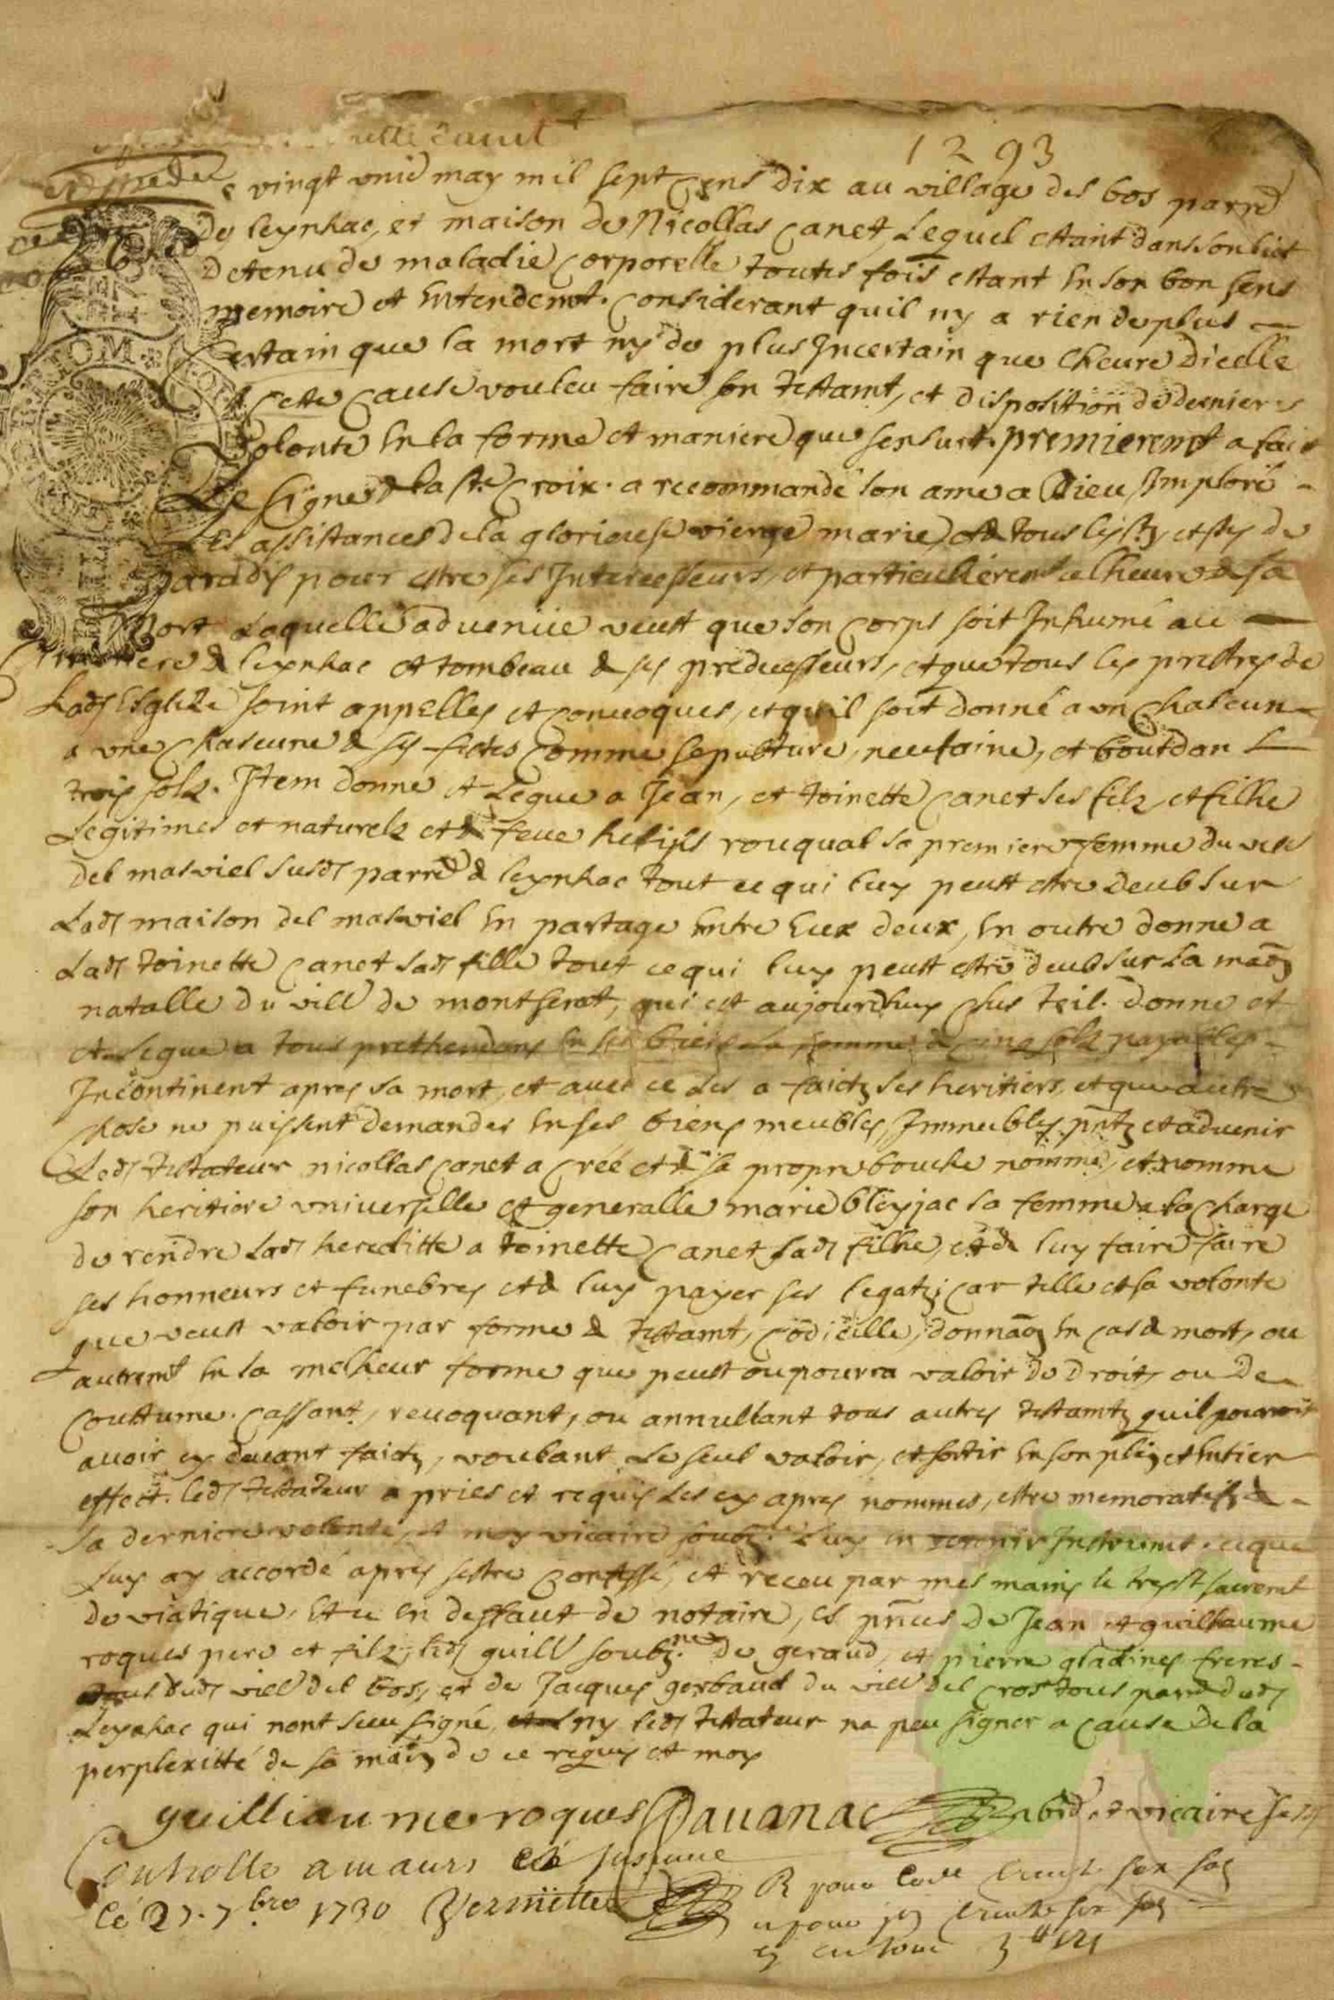 1293
vingt unie may mil sept cens dix au village des bos parre
de leynhac, et maison de Nicollas canet, Lequel estant dans son lict
detenu de maladie corporelle toutes fois estant en son bon sens
memoire et entendemt. considerant quil ny a rien de plus
certain que la mort ny de plus Incertain que lheure dicelle
a cette cause vouleu faire son testamt, et disposition de derniere
volonte en la forme et maniere que sensuit. premieremt a fait
Le signe de la ste croix. a recommandé son ame a Dieu Imploré
Les assistances de la glorieuse vierge marie, et de tous les sts, et stes de
paradis pour estre ses Intercesseurs, et particulieremt a lheure de sa
mort Laquelle advenue veust que son corps soit Inhumé au
cimettiere de leynhac et tombeau de ses predecesseurs, et que tous les prestres de
Lade Esglize soint appelles et convoques, et quil soit donné a un chascun
a une chascune de ses festes comme sepulture, neufaine, et boutdan
trois solz. Item donne et Legue a Jean, et toinette canet ses filz, et filhe
Legitimes et naturelz et de feue rouqual sa premiere femme du
del masviel susde parre de leynhac tout ce qui luy peust estre deub sur
Lade maison del masviel en partage entre eux deux, en outre donne a
Lade toinette canet sade fille tout ce qui luy peust estre deub sur la maon
natalle du vill de montserat, qui est aujourdhuy chus teil. donne et
et Legue a tous prethendans en ses biens la somme de cinq solz payables
Incontinent apres sa mort, et avec ce les a faictz ses heritiers, et que autre
chose ne puissent demander en ses biens meubles, Immeubles pntz et advenir
Lede testateur nicollas canet a créé et de sa propre bouche nommé, et nomme
son heritiere universelle et generalle marie bleyjac sa femme a la charge
de rendre lade hereditte a toinette canet sade filhe, et de luy faire faire
ses honneurs et funebres et de luy payer ses legatz car telle est sa volonte
que veust valoir par forme de testamt, codicille, donnaon en cas de mort, ou
autremt en la melheur forme que peust ou pourra valoir de droit, ou de
couttume. cassant, revoquant, ou annullant tous autres testamtz quil pourroit
avoir cy devant faictz, voulant le seul valoir, et sortir en son plein et entier
effect. lede testateur a pries et requis les cy apres nommes, estre memoratifs de
sa derniere volonte, et moy vicaire soubz. luy en retenir Instrumt. ce que
Luy ay accordé apres sestre confessé, et receu par mes mains le trest sacremt
de viatique, et ce en deffaut de notaire, es pnces de Jean et guilhaume
roques pere et filz, lede guill soubzne de geraud, et pierre gladines freres
dude vill del bos, et de Jacques gerbaud du vill del cros tous parre dude
Leynhac qui nont sceu signé, ny lede testateur na peu signer a cause de la
perplexitté de sa main de ce requis et moy
guilliaumeroques Davanac et vicaire
Controlle a maurs
le 27. 7bre 1730